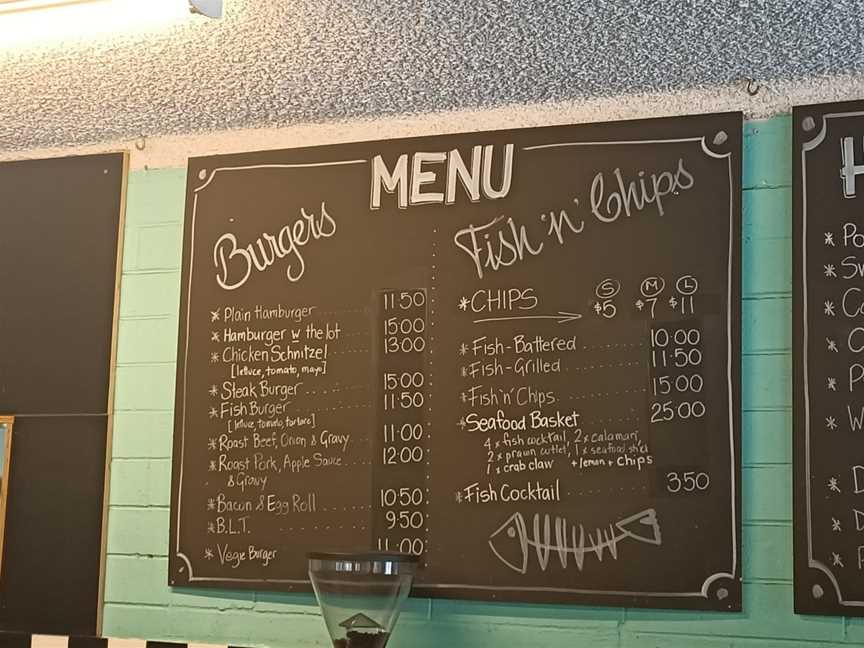 MENU
Burgers
* Plain Hamburger 11:50
* Hamburger w the lot 15:00
* Chicken Schnitzel 13:00
[lettuce, tomato, mayo]
* Steak Burger 15:00
* Fish Burger 11:50
[lettuce, tomato, tartare]
* Roast Beef, Onion & Gravy 11:00
* Roast Pork, Apple Sauce 12:00
& Gravy
* Bacon & Egg Roll 10:50
* B.L.T. 9:50
* Vegie Burger 11:00
Fish 'n' Chips
S M L
* CHIPS $5 $7 $11
* Fish-Battered 10:00
* Fish-Grilled 11:50
* Fish 'n' Chips 15:00
* Seafood Basket 25:00
4 x fish cocktail, 2 x calamari,
2 x prawn cutlet, 1 x seafood
1 x crab claw + lemon + chips
* Fish Cocktail 3:50